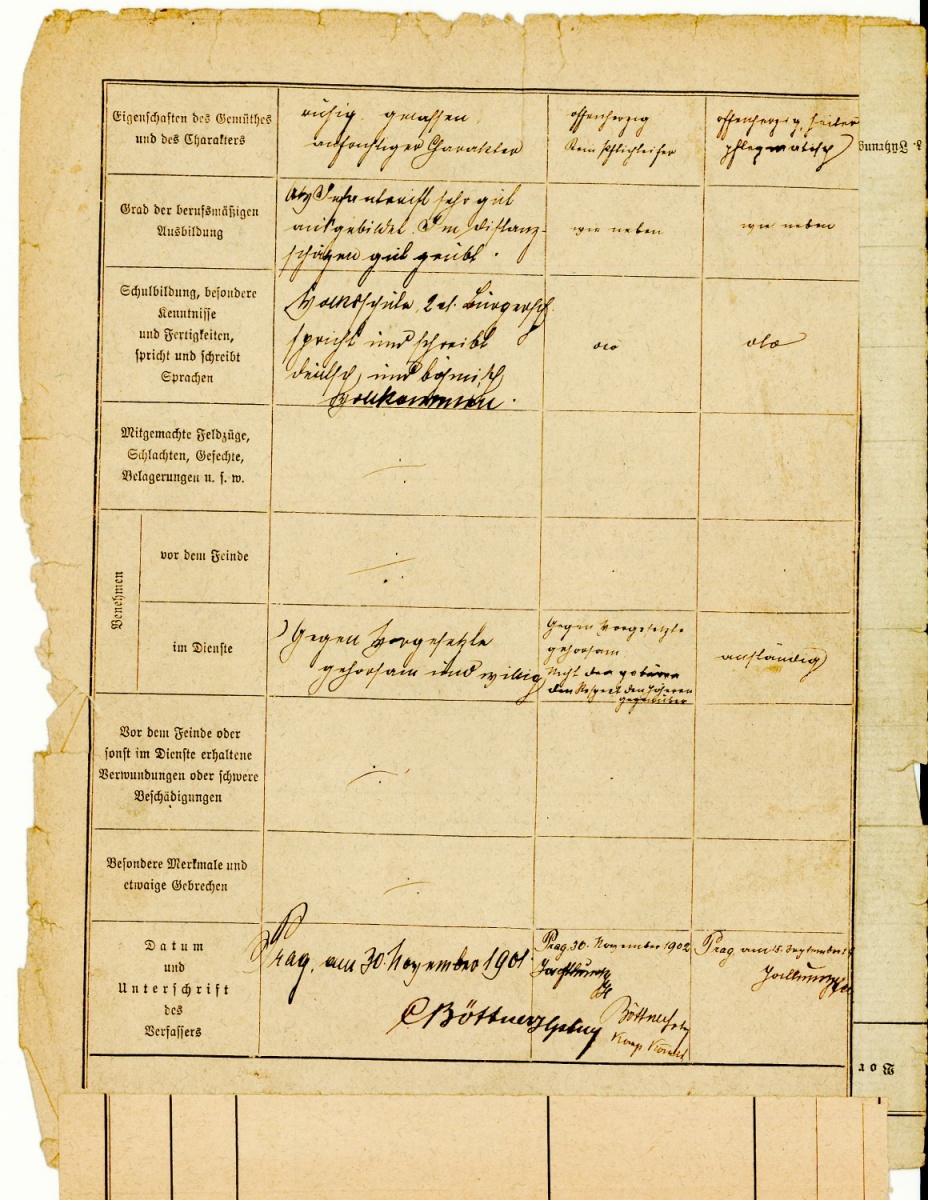 Eigenschaften des Gemüthes
und des Charakters
ruhig gelassen
aufrichtiger Charakter
offenherzig
kein
offenherzig, heiter
phlegmatisch
Grad der berufsmäßigen
Ausbildung
Als Infanterist sehr gut
ausgebildet. Im Distanz-
schätzen gut geübt.
wie neben
wie neben
Schulbildung, besondere
Kenntnisse
und Fertigkeiten,
spricht und schreibt
Sprachen
Volksschule, 2 Cl. Bürgersch.
spricht und schreibt
deutsch und böhmisch
vollkommen.
dto
dto
Mitgemachte Feldzüge,
Schlachten, Gefechte,
Belagerungen u. s. w.
Benehmen
vor dem Feinde
im Dienste
Gegen Vorgesetzte
gehorsam und willig
Gegen Vorgesetzte
gehorsam
Nicht den
den Respect den Höheren
gegenüber
anständig
Vor dem Feinde oder
sonst im Dienste erhaltene
Verwundungen oder schwere
Beschädigungen
Besondere Merkmale und
etwaige Gebrechen
Datum
und
Unterschrift
des
Verfassers
Prag, am 30. November 1901
CBöttner
Prag 30. November 1902
Böttner
Prag am 15. September
z. Führung
Vor